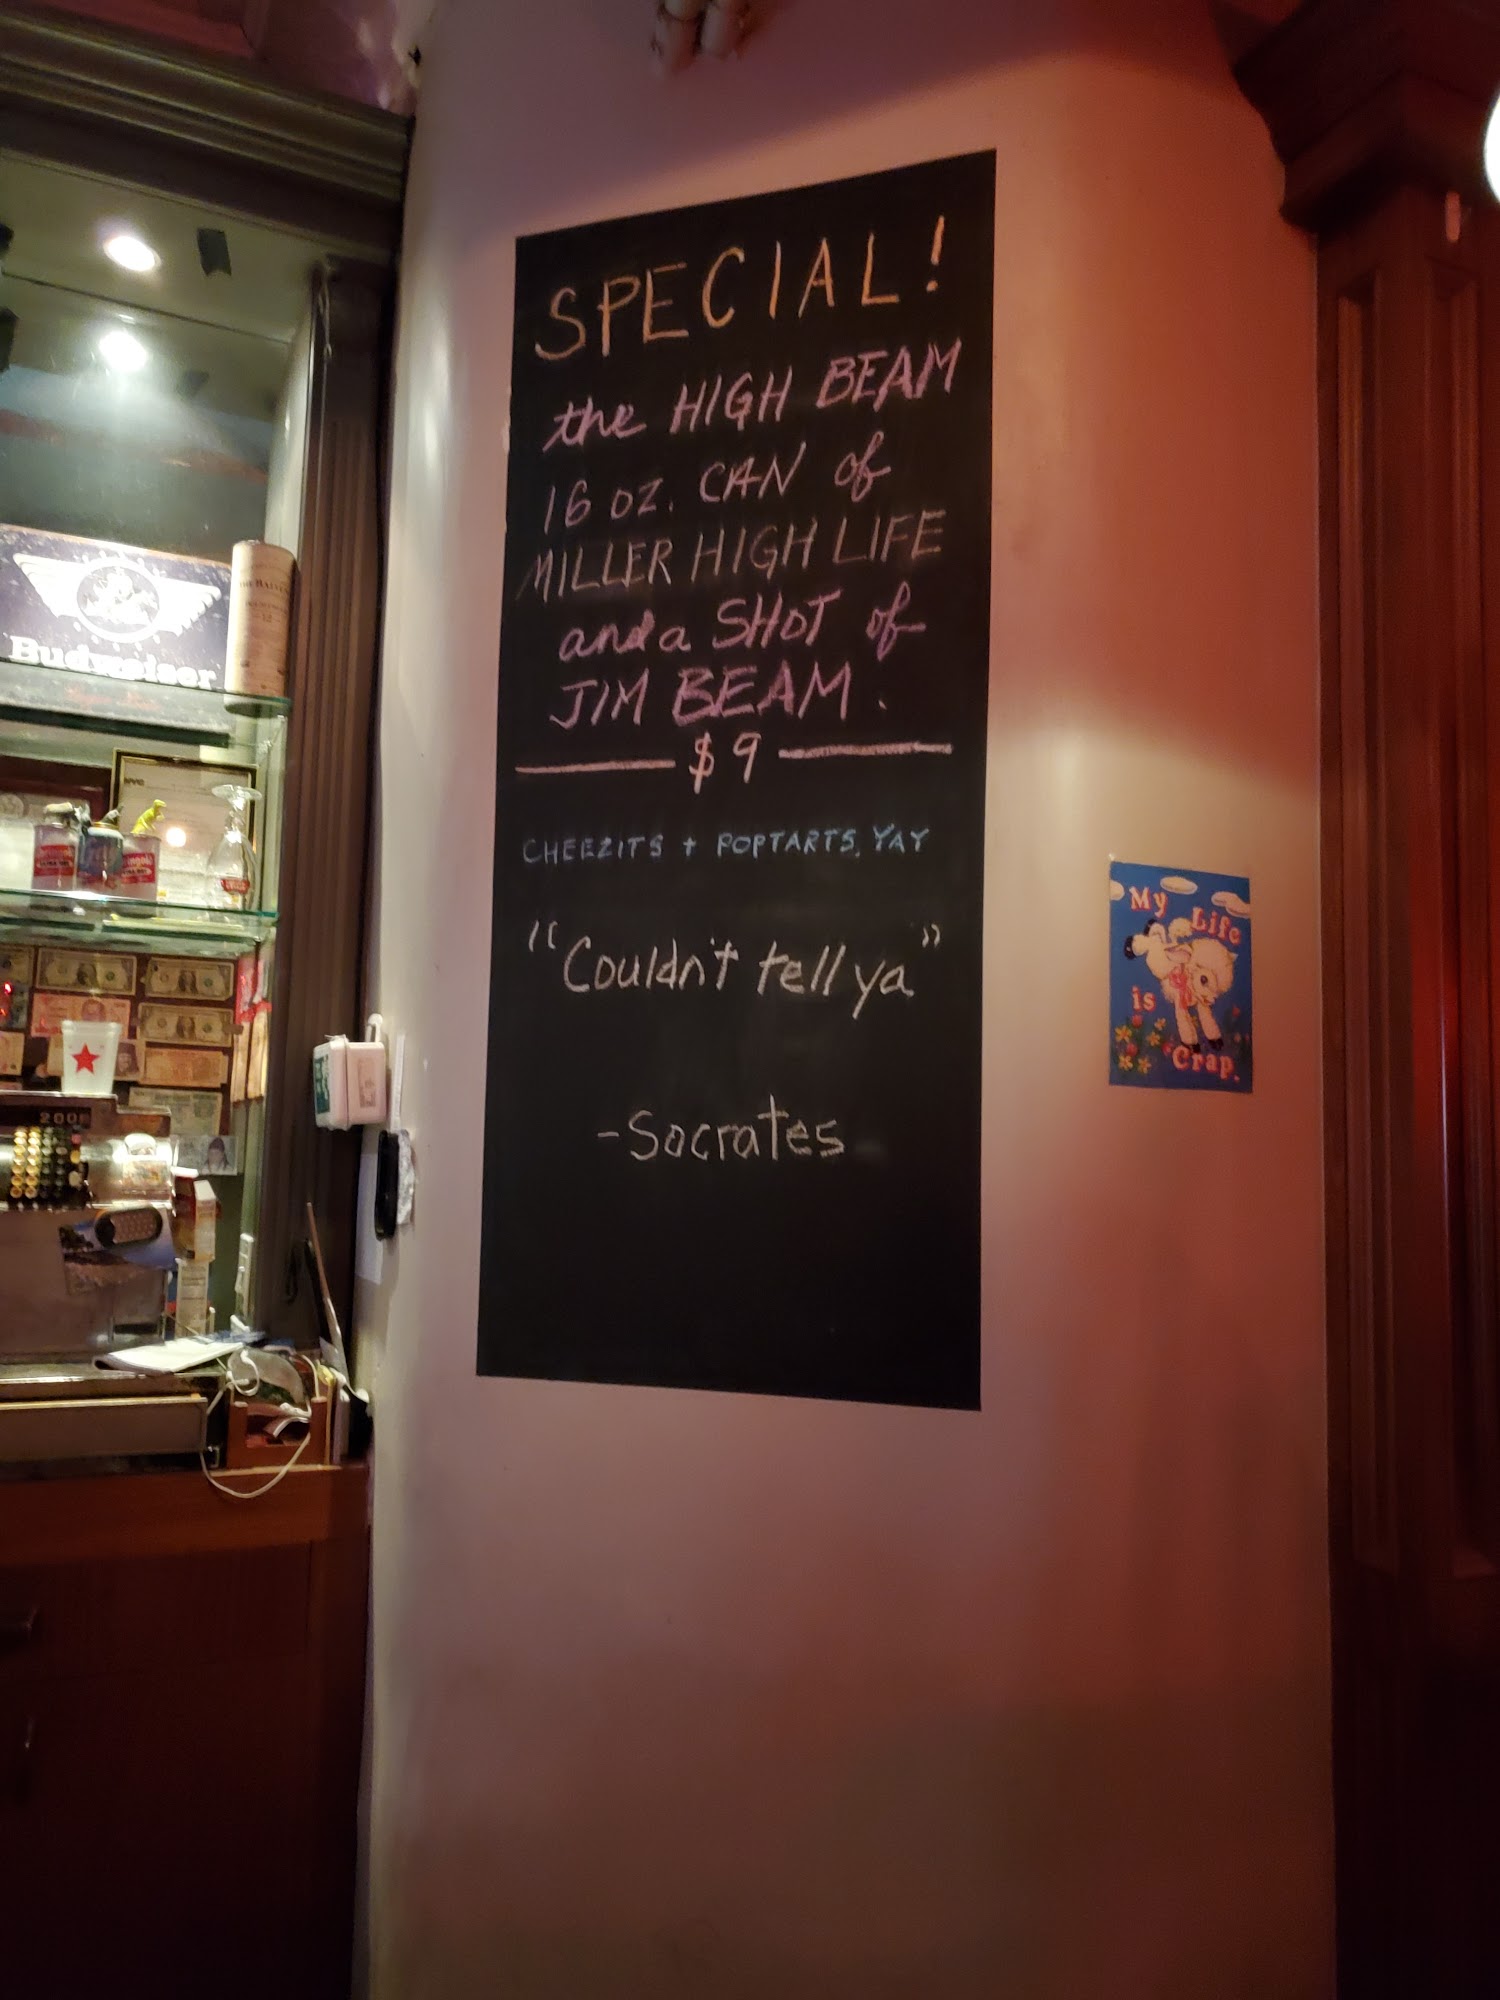 SPECIAL!
the HIGH BEAM
16 oz. CAN of
MILLER HIGH LIFE
and a SHOT of
JIM BEAM.
$9
CHEEZITS + POPTARTS, YAY
"Couldn't tell ya"
-Socrates
My Life
is
Crap.
Budweiser
2008